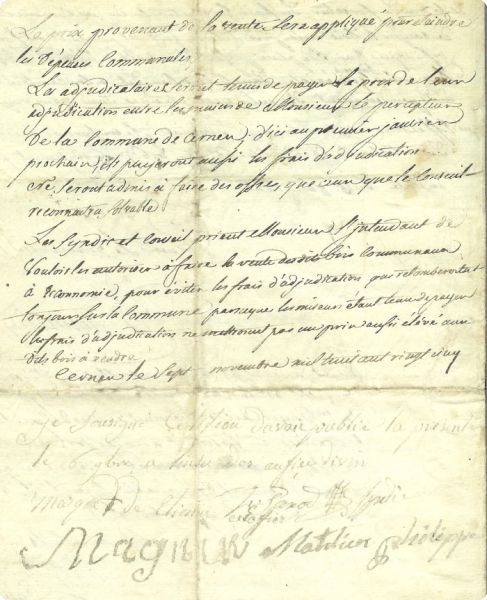 Le prix provenant de la vente sera appliqué pour éteindre
les dépenses Communales.
Les adjudicataires seront tenus de payer le prix de leur
adjudication entre les mains de Monsieur le percepteur
de la Commune de Cernex, d'ici au premier janvier
prochain, ils payeront aussi les frais d'adjudication
Ne seront admis à faire des offres, que ceux que le Conseil
reconnaitra solvable
Les Syndic et Conseil prient Monsieur l'intendant de
vouloir les autoriser à faire la vente des dits bois Communaux
à économie, pour éviter les frais d'adjudication qui retomberoient
toujours sur la Commune parceque les miseurs étant tenu de payer
les frais d'adjudication ne mettront pas un prix aussi élevé aux
dits bois à vendre
Cernex le Sept novembre mil huit cent vingt cinq
Je soussigné Certifie d'avoir publié la présente
le 6 9bre a l'issue des offices divin
Marque de Etienne Syndic
MAGNIN Mathieu philippe